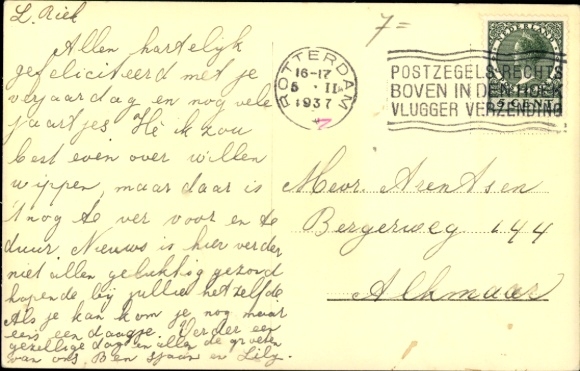 L. Riek
Allen hartelijk
gefeliciteerd met je
verjaardag en nog vele
jaartjes Hè ik zou
best even over willen
wippen, maar daar is
't nog te ver voor en te
duur. Nieuws is hier verder
niet allen gelukkig gezond
hopende, bij jullie hetzelfde
Als je kan kom je nog maar
eens een daagje. Verder een
gezellige dag en allen de groeten
van ons, Ben Sjaan en Lily.
7=
ROTTERDAM
16-17
5 · II
1937
NEDERLAND
5 CENT
POSTZEGELS RECHTS
BOVEN IN DEN HOEK
VLUGGER VERZENDING
Mevr. Arentsen
Bergerweg 144
Alkmaar